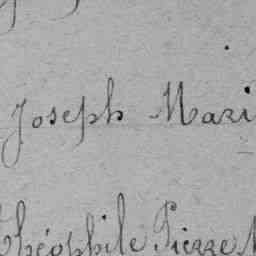 Joseph Mari
Théophile Pierre